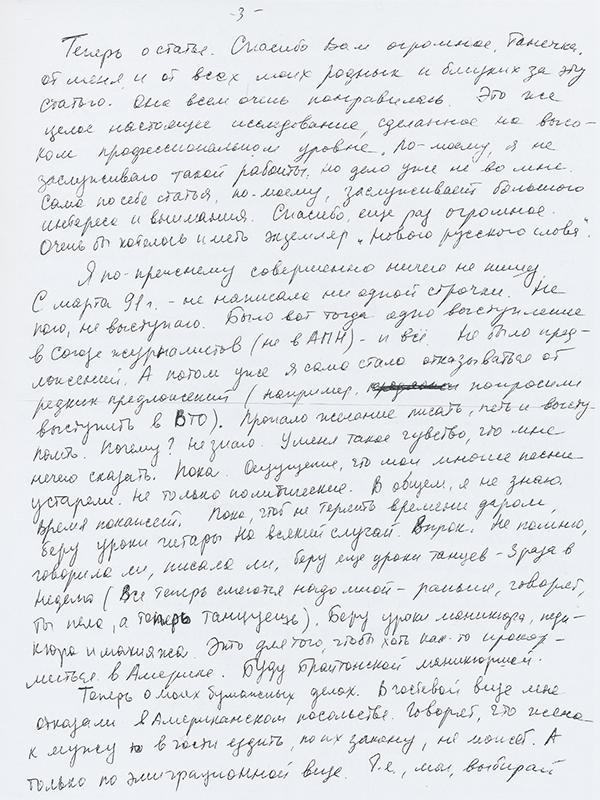 -3-
Теперь о статье. Спасибо Вам огромное, Танечка,
от меня и от всех моих родных и близких за эту
статью. Она всем очень понравилась. Это же
целое настоящее исследование, сделанное на высо-
ком профессиональном уровне. По-моему, я не
заслуживаю такой работы, но дело уже не во мне.
Сама по себе статья, по-моему, заслуживает большого
интереса и внимания. Спасибо, еще раз огромное.
Очень бы хотелось иметь экземпляр „Нового русского слова".
Я по-прежнему совершенно ничего не пишу.
С марта 91г. - не написала ни одной строчки. Не
пою, не выступаю. Было вот тогда одно выступление
в Союзе журналистов (не в АПН) - и всё. Не было пред-
ложений. А потом уже я сама стала отказываться от
редких предложений (например, попросили
выступить в ВТО). Пропало желание писать, петь и высту-
пать. Почему? Не знаю. У меня такое чувство, что мне
нечего сказать. Пока. Ощущение, что мои многие песни
устарели. Не только политические. В общем, я не знаю.
Время покажет. Пока, чтоб не терять времени даром,
беру уроки гитары на всякий случай. Впрок. Не помню,
говорила ли, писала ли, беру еще уроки танцев - 3 раза в
неделю (Все теперь смеются надо мной - раньше, говорят,
ты пела, а теперь танцуешь). Беру уроки маникюра, педи-
кюра и макияжа. Это для того, чтобы хоть как-то прокор-
миться в Америке. Буду Брайтонской маникюршей.
Теперь о моих бумажных делах. В гостевой визе мне
отказали в Американском посольстве. Говорят, что жена
к мужу в гости ездить, по их закону, не может. А
только по эмиграционной визе. Т.е., мол, выбирай